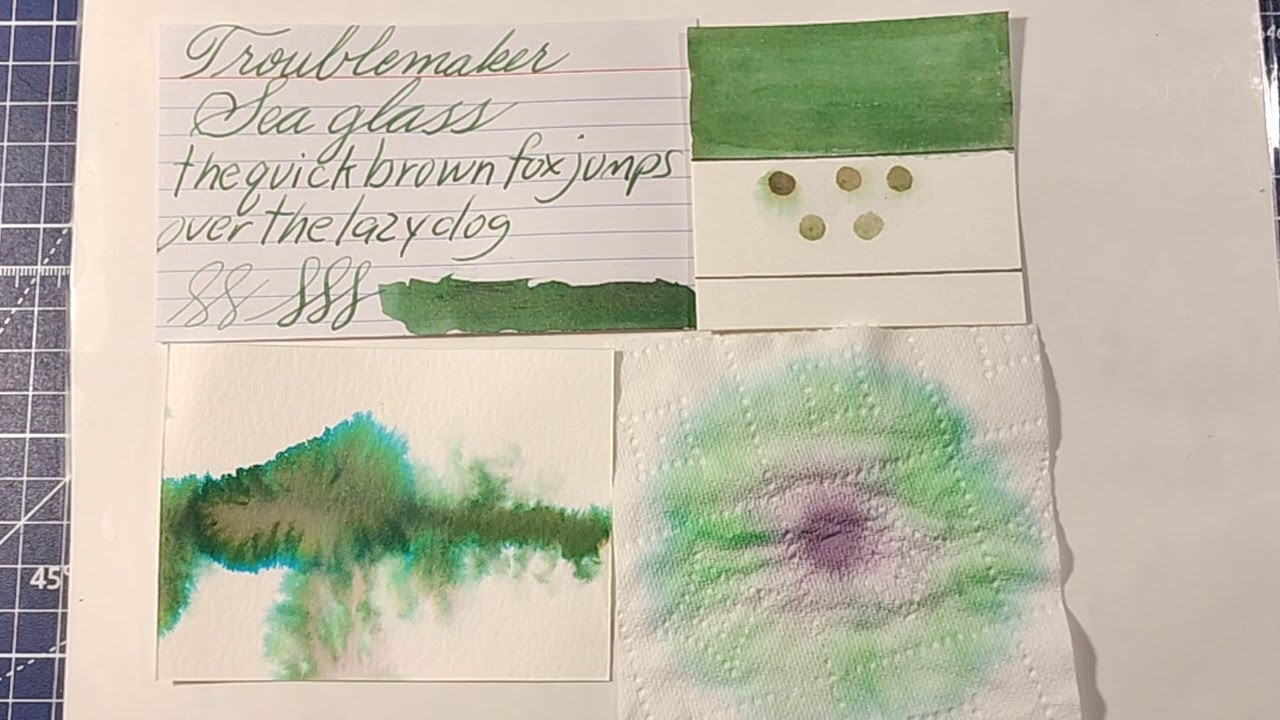 Troublemaker
Sea glass
the quick brown fox jumps
over the lazy dog
45°